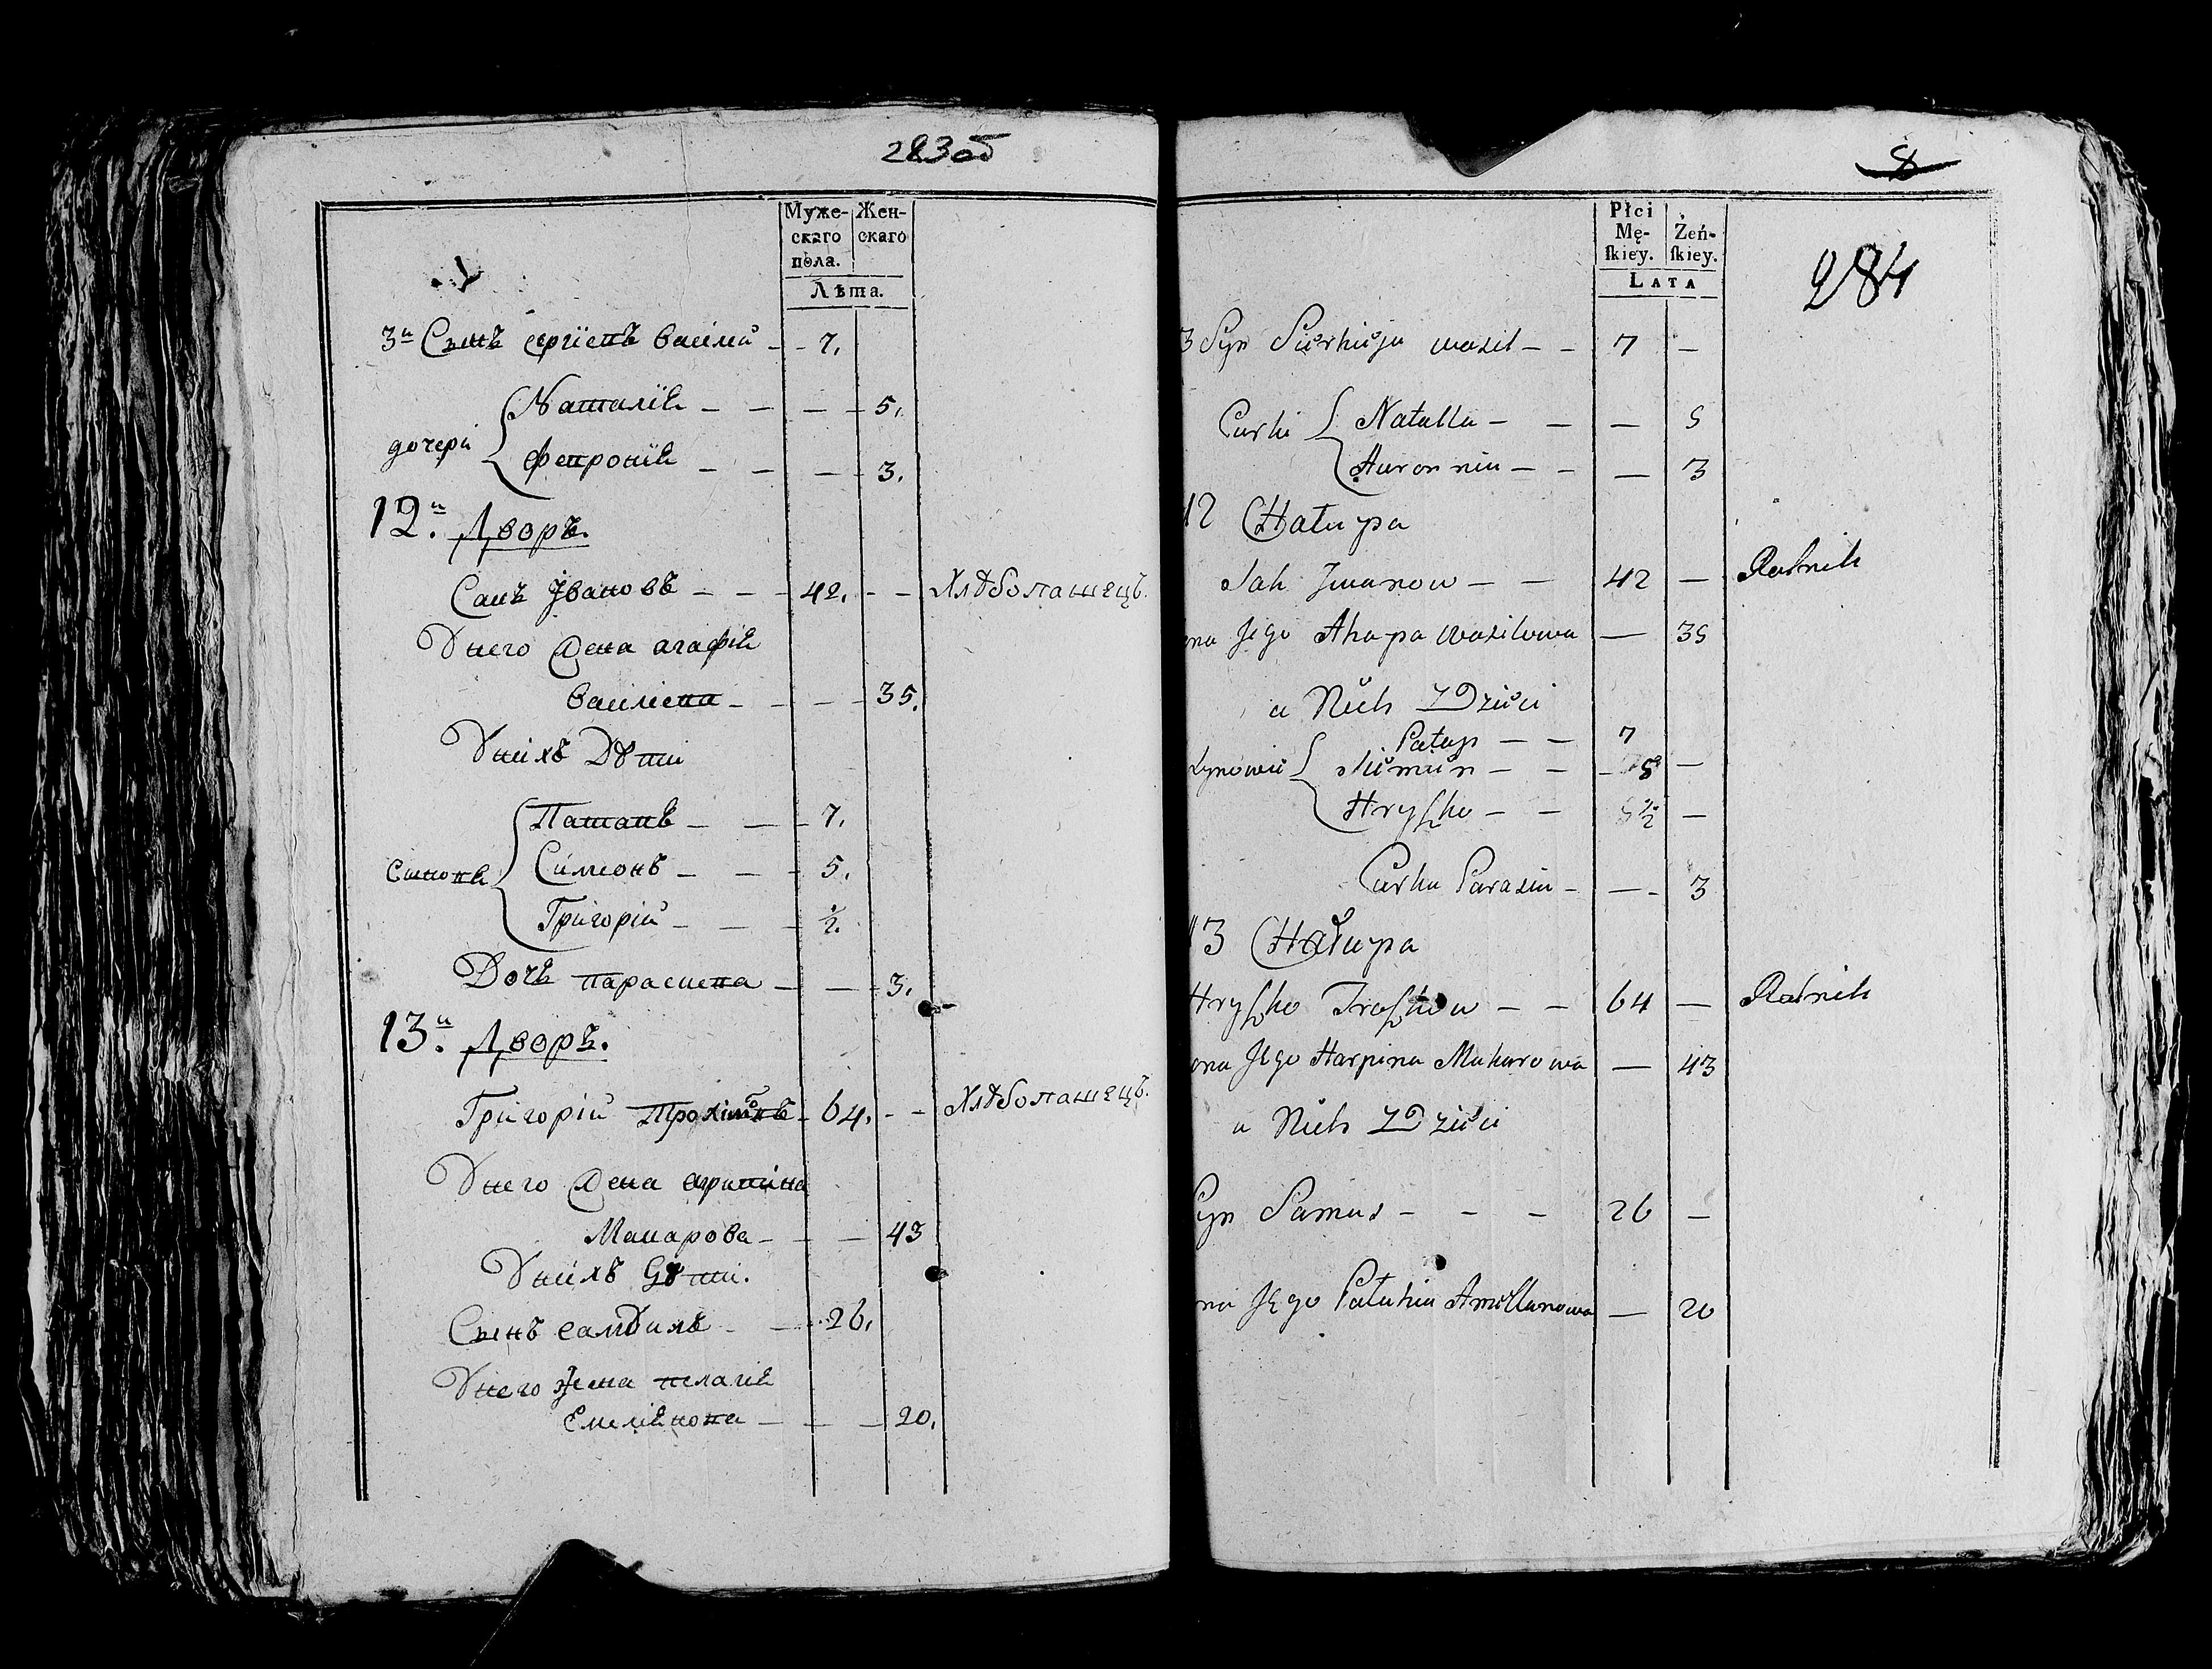 283об
Муже-
скаго
пола.
Жен-
скаго
Лѣта.
3й Сынъ сергiевъ василiй – – 7.
дочери
Наталiя – – – – 5.
Февронiя – – – – 3.
12й. Дворъ.
Сакъ Iвановъ – – – 42. – – Хлѣбопашецъ.
Унего Жена агафiя
василiева – – – 35.
Унихъ Дѣти
Синовя
Патапъ – – – 7.
Симеонъ – – – 5.
Григорiй – – – ½.
Дочь парасцева – – – 3.
13й. Дворъ.
Григорiй – 64. – – Хлѣбопашецъ.
Унего Жена агрипина
Макарова – – – 43
Унихъ Дѣти.
Сынъ самуилъ – – 26.
Унего Жена пелагiя
Емелiянова – – – 20.
8
284
Płci
Mę-
ſkiey.
Żeń-
ſkiey.
LATA
3 Syn Sierhieja wasil – – 7 –
Curki
Natalla – – – 5
Auronnia – – – 3
12 Chałupa
Sak Jwanow – – 42 – Rolnik
ona Jego Ahapa wasilowa – 35
u Nich z Dzieci
Synowie
Patap – – 7
Siemion – – 5 –
Hryſzko – – ½ –
Curka Parasia – – – 3
13 Chałupa
Hryſzko Troſzkow – – 64 – Rolnik
ona Jego Harpina Makarowa – 43
u Nich z Dzieci
Syn Samus – – – 26 –
na Jego Pałahia Amellanowa – 20